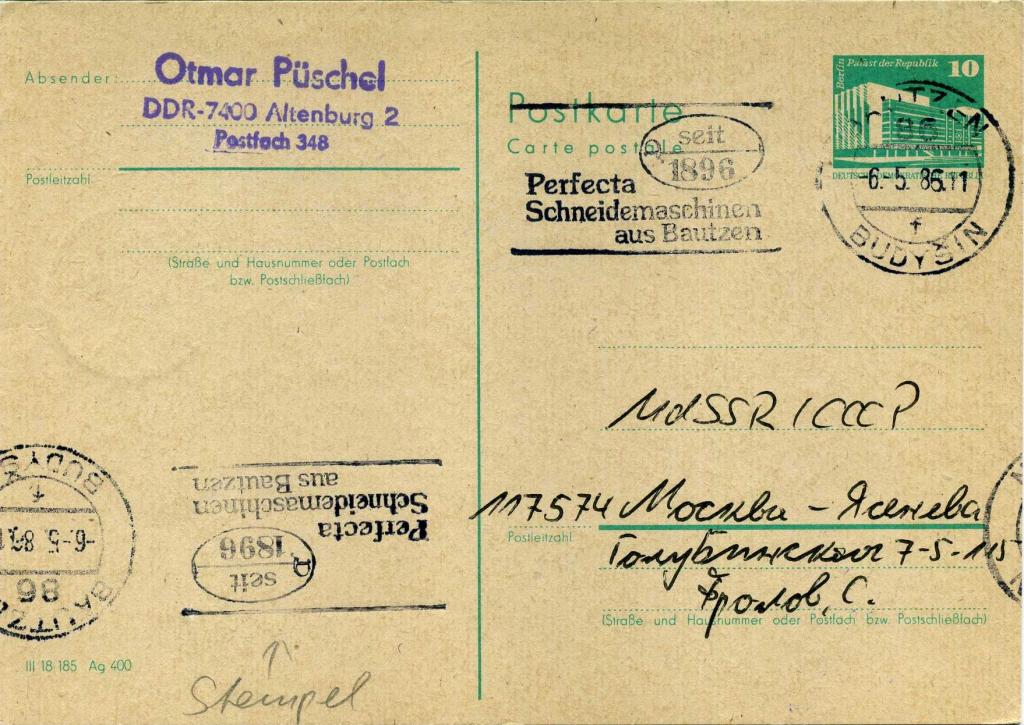 Absender: Otmar Püschel
DDR-7400 Altenburg 2
Postfach 348
Postleitzahl
(Straße und Hausnummer oder Postfach
bzw. Postschließfach)
Postkarte
Carte postale
seit
1896
Perfecta
Schneidemaschinen
aus Bautzen
Berlin Palast der Republik 10
DEUTSCHE DEMOKRATISCHE REPUBLIK
BAUTZEN
86
-6.5.86.11
f
BUDYŠIN
UdSSR / СССР
117574 Москва - Ясенева
Postleitzahl
Голубинская 7-5-115
Фролов, С.
(Straße und Hausnummer oder Postfach bzw. Postschließfach)
BUDYŠ
f
-6.5.86.1
86
BAUTZ
Perfecta
Schneidemaschinen
aus Bautzen
seit
1896
III 18 185 Ag 400
Stempel